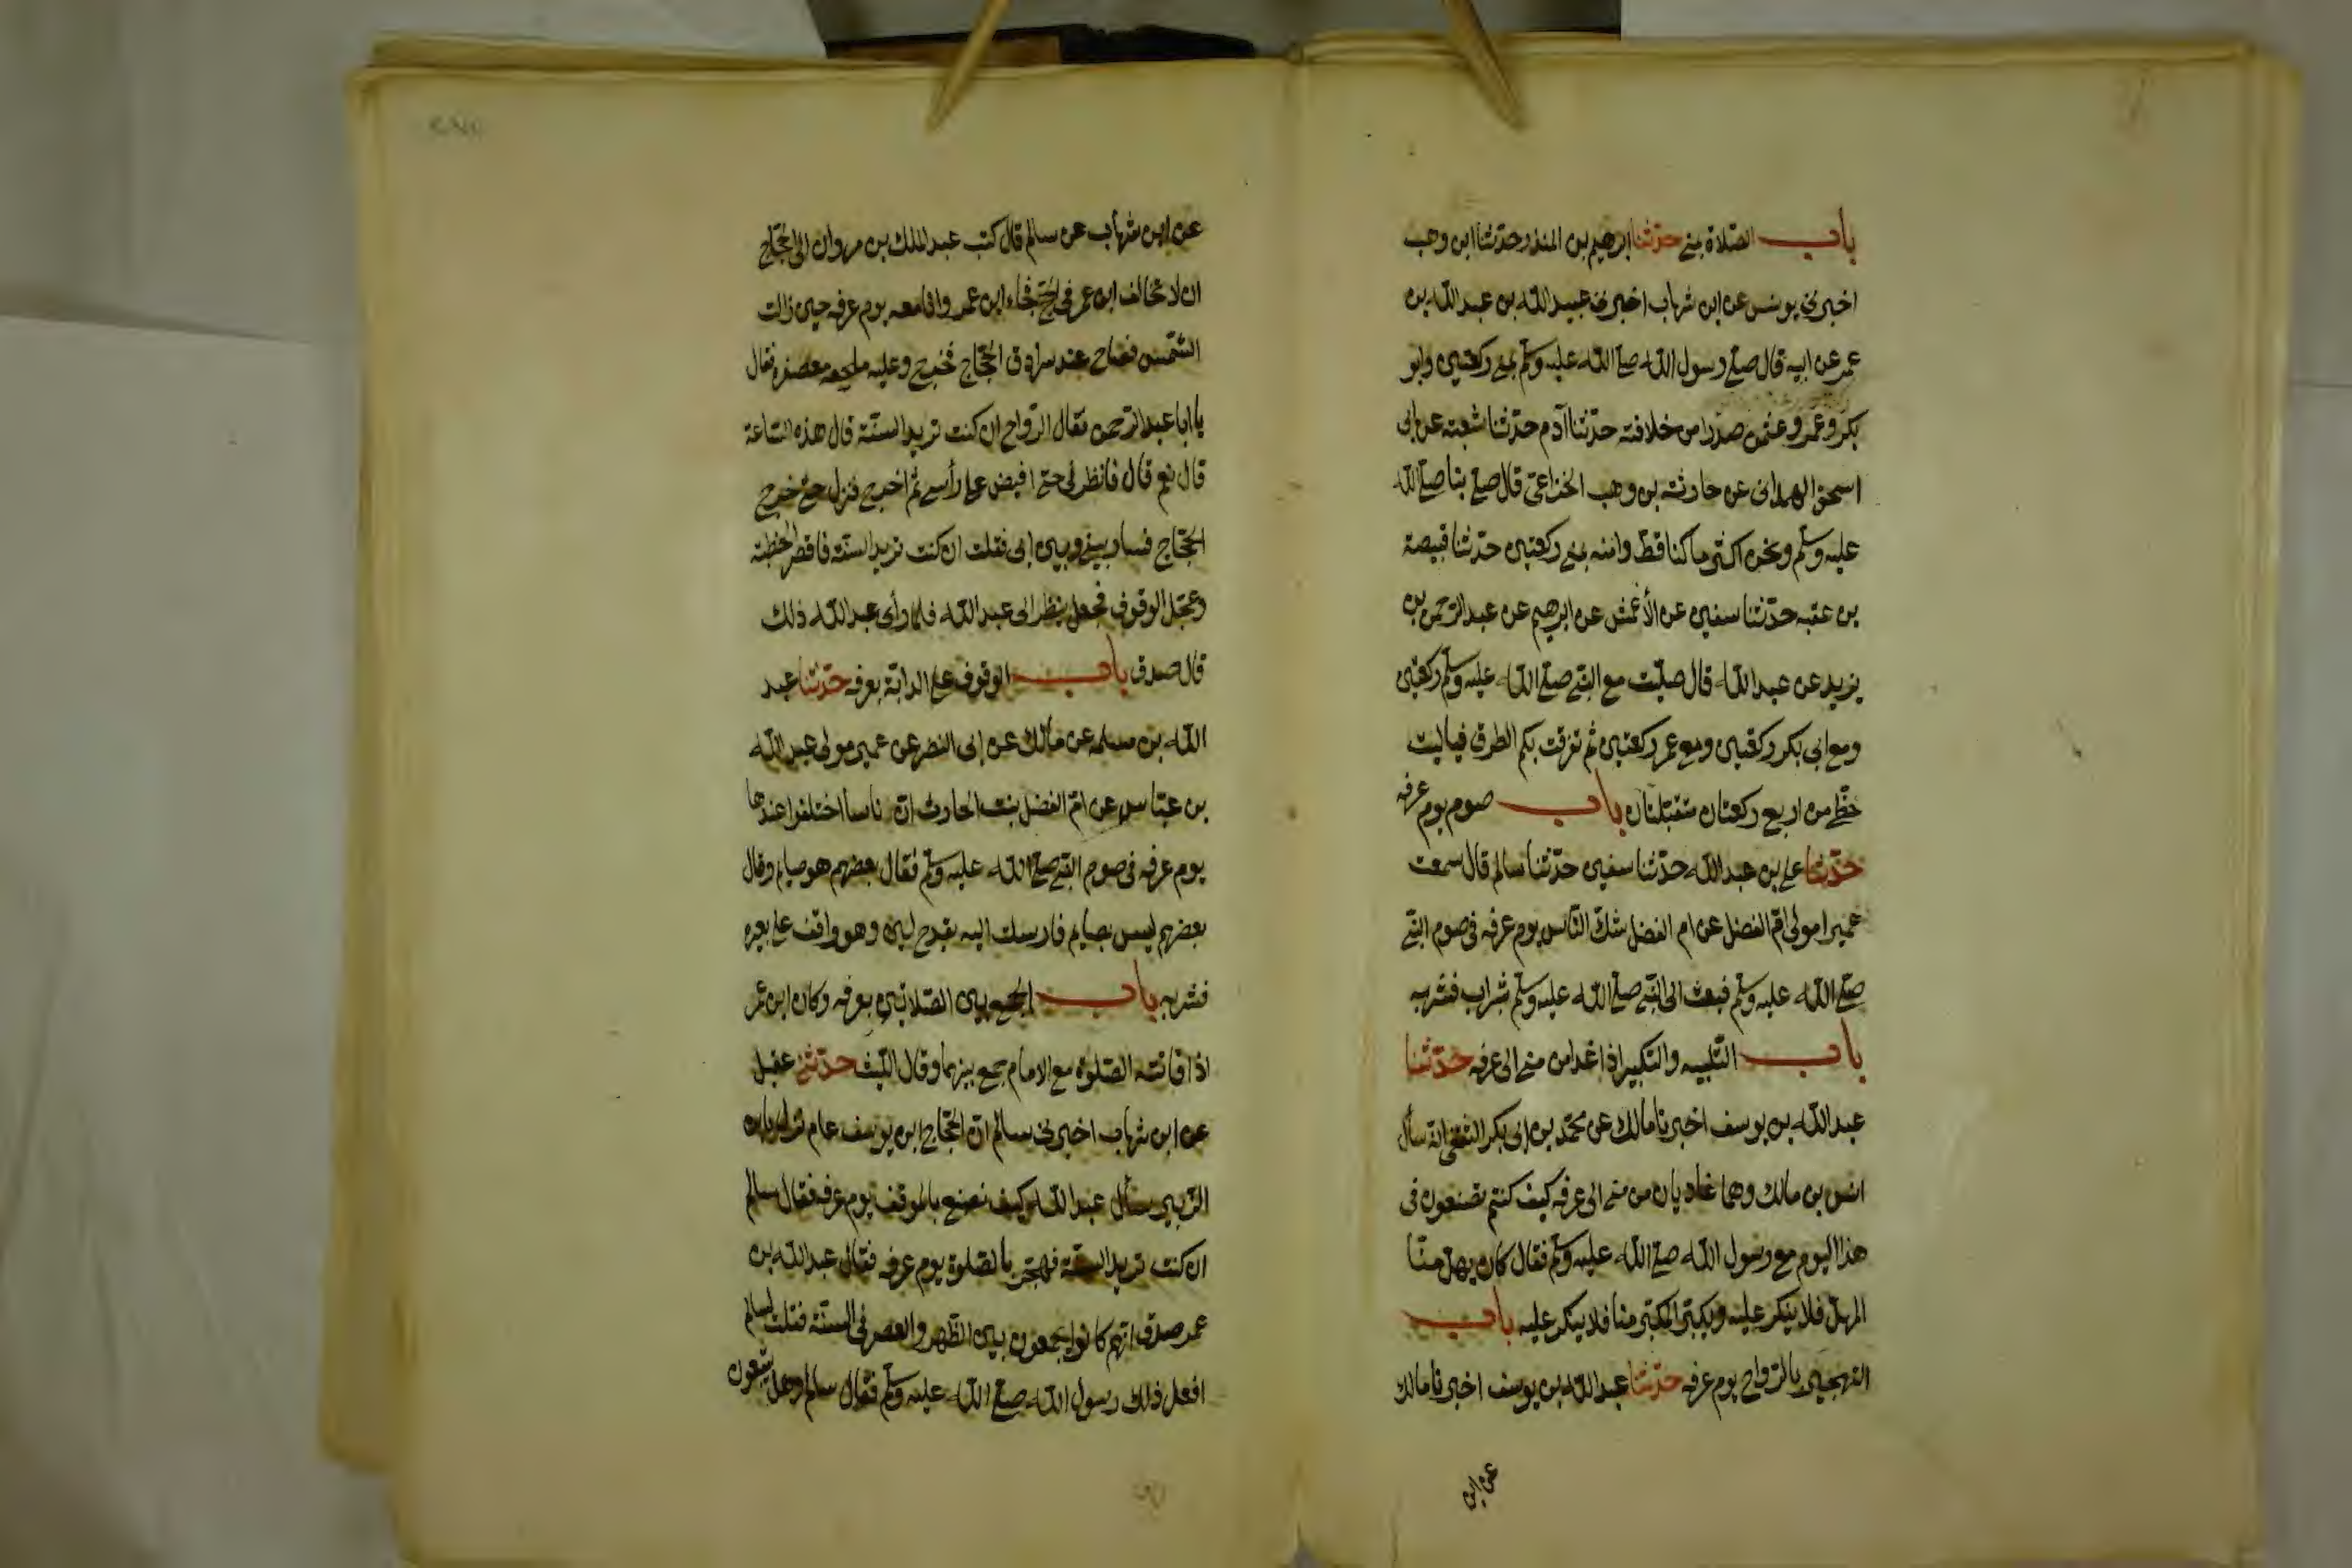 باب الصلاة بمنى حدثنا ابرهيم بن المنذر حدثنا ابن وهب
اخبرني يونس عن ابن شهاب اخبرني عبيد الله بن عبد الله بن
عمر عن ابيه قال صلى رسول الله صلى الله عليه وسلم بمنى ركعتين وابو
بكر وعمر وعثمن صدرا من خلافته حدثنا آدم حدثنا شعبة عن ابى
اسحق الهمدانى عن حارثة بن وهب الخزاعى قال صلى بنا صلى الله
عليه وسلم ونحن اكثر ما كنا قط وامنه بمنى ركعتين حدثنا قبيصة
بن عقبه حدثنا سفين عن الأعمش عن ابرهيم عن عبد الرحمن بن
يزيد عن عبد الله قال صليت مع النبى صلى الله عليه وسلم ركعتين
ومع ابى بكر ركعتين ومع عمر ركعتين ثم تفرقت بكم الطرق فياليت
حظى من اربع ركعتان متقبلتان باب صوم يوم عرفه
حدثنا على بن عبد الله حدثنا سفين حدثنا سالم قال سمعت
عميرا مولى ام الفضل عن ام الفضل شك الناس يوم عرفه فى صوم النبى
صلى الله عليه وسلم فبعث الى النبى صلى الله عليه وسلم شراب فشربه
باب التلبيه والتكبير اذا غدا من منى الى عرفه حدثنا
عبد الله بن يوسف اخبرنا مالك عن محمد بن ابى بكر الثقفى انه سأل
انس بن مالك وهما غاديان من منى الى عرفه كيف كنتم تصنعون فى
هذا اليوم مع رسول الله صلى الله عليه وسلم فقال كان يهل منا
المهل فلا ينكر عليه ويكبر المكبر منا فلا ينكر عليه باب
التهجير بالرواح يوم عرفه حدثنا عبد الله بن يوسف اخبرنا مالك
عن ابن
عن ابن شهاب عن سالم قال كتب عبد الملك بن مروان الى الحجاج
ان لا تخالف ابن عمر فى الحج فجاء ابن عمر وانا معه يوم عرفه حين زالت
الشمس فصاح عند سرادق الحجاج فخرج وعليه ملحفه معصفره فقال
يا ابا عبد الرحمن فقال الرواح ان كنت تريد السنة قال هذه الساعة
قال نعم قال فانظرنى حتى افيض على رأسى ثم اخرج فنزل حتى خرج
الحجاج فسار بينى وبين ابى فقلت ان كنت تريد السنة فاقصر الخطبة
وعجل الوقوف فجعل ينظر الى عبد الله فلما رأى عبد الله ذلك
قال صدق باب الوقوف على الدابة بعرفه حدثنا عبد
الله بن مسلمه عن مالك عن ابى النضر عن عمير مولى عبد الله
بن عباس عن ام الفضل بنت الحارث ان ناسا اختلفوا عندها
يوم عرفه فى صوم النبى صلى الله عليه وسلم فقال بعضهم هو صايم وقال
بعضهم ليس بصايم فارسلت اليه بقدح لبن وهو واقف على بعيره
فشربه باب الجمع بين الصلاتين بعرفه وكان ابن عمر
اذا فاتته الصلوة مع الامام جمع بينهما وقال الليث حدثنى عقيل
عن ابن شهاب اخبرنى سالم ان الحجاج ابن يوسف عام نزل بابن
الزبير سأل عبد الله كيف تصنع بالموقف يوم عرفه فقال سالم
ان كنت تريد السنة فهجر بالصلوة يوم عرفه فقال عبد الله بن
عمر صدق انهم كانوا يجمعون بين الظهر والعصر فى السنة فقلت لسالم
افعل ذلك رسول الله صلى الله عليه وسلم فقال سالم وهل يتبعون